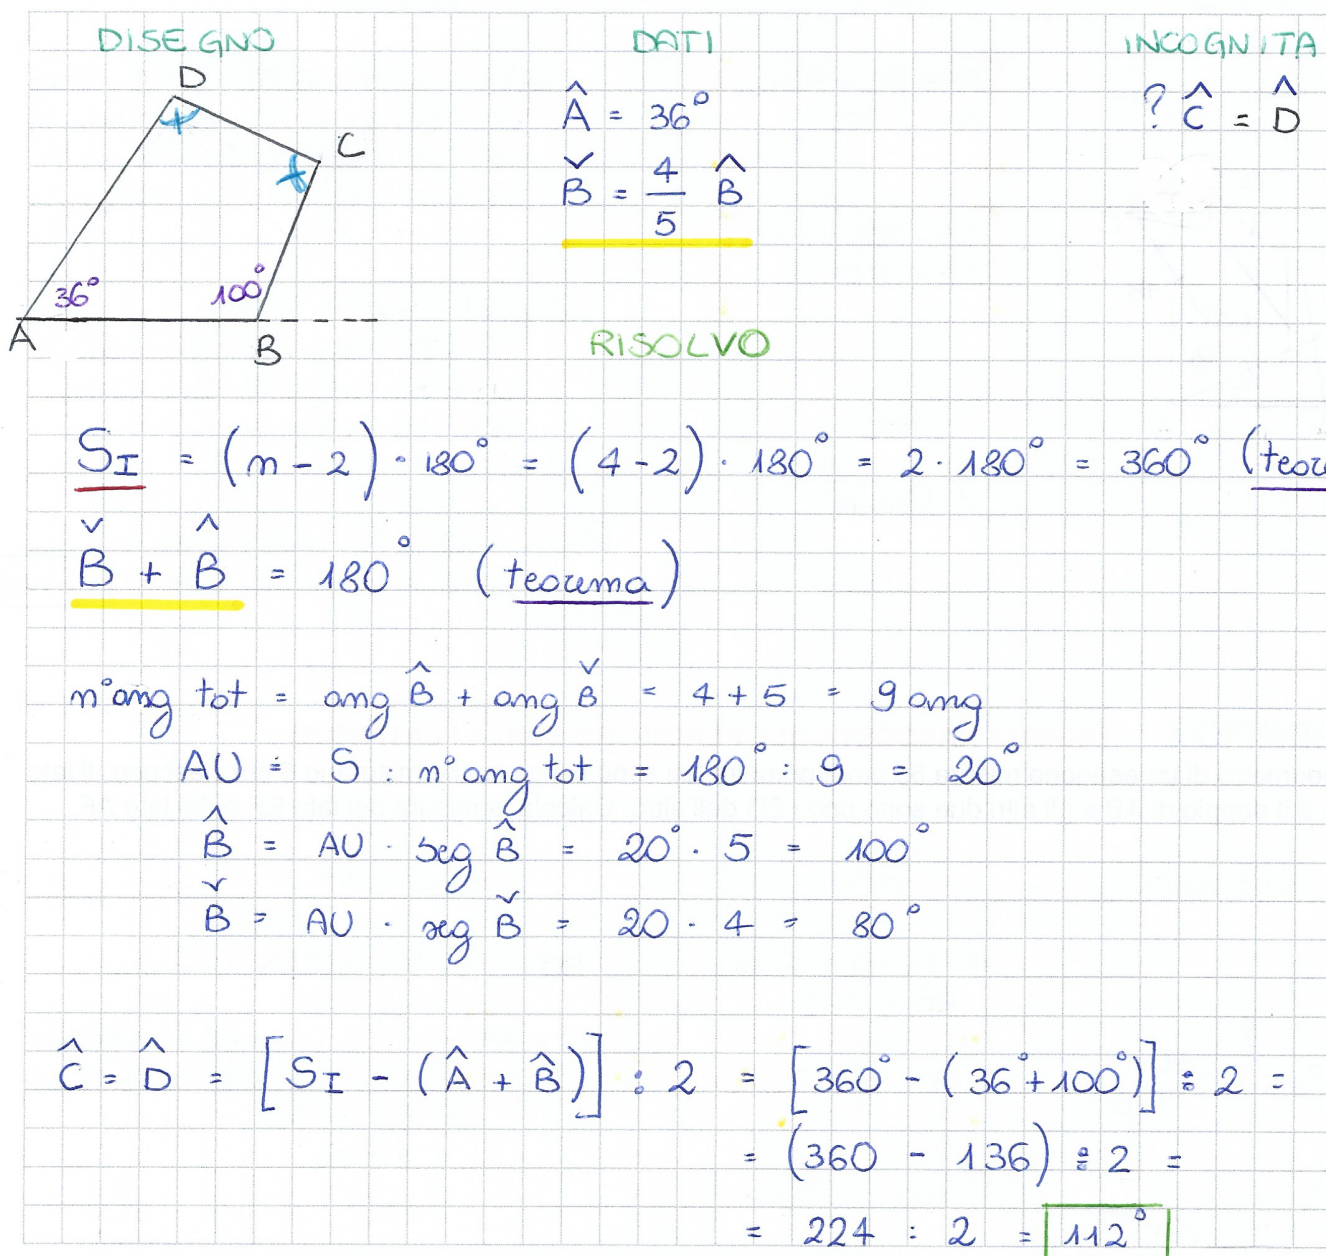 DISEGNO DATI INCOGNITA
D
C
36°
100°
A
B
Â = 36°
B̌ = 4/5 B̂
? Ĉ = D̂
RISOLVO
S_I = (n - 2) · 180° = (4 - 2) · 180° = 2 · 180° = 360° (teor
B̌ + B̂ = 180° (teorema)
n° ang tot = ang B̂ + ang B̌ = 4 + 5 = 9 ang
AU = S : n° ang tot = 180° : 9 = 20°
B̂ = AU · seg B̂ = 20° · 5 = 100°
B̌ = AU · seg B̌ = 20 · 4 = 80°
Ĉ = D̂ = [S_I - (Â + B̂)] : 2 = [360° - (36° + 100°)] : 2 =
= (360 - 136) : 2 =
= 224 : 2 = 112°